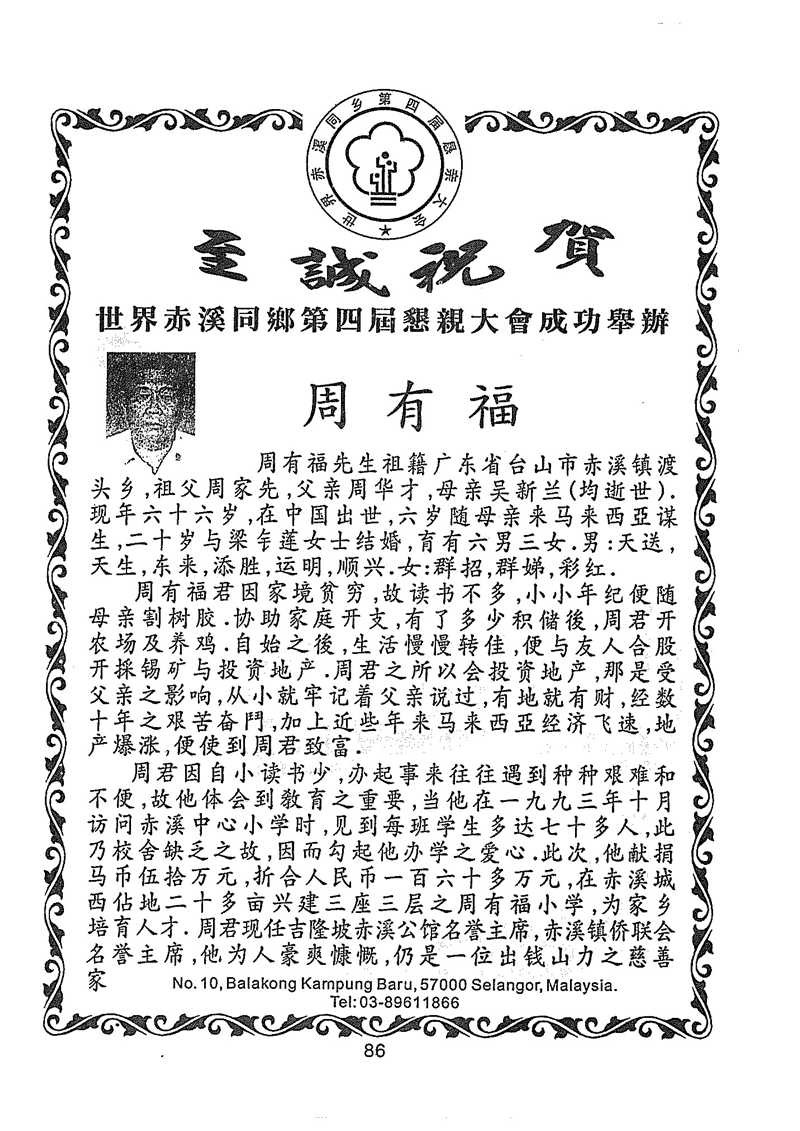 世界赤溪同乡第四届恳亲大会
至誠祝賀
世界赤溪同鄉第四屆懇親大會成功舉辦
周有福
周有福先生祖籍广东省台山市赤溪镇渡
头乡,祖父周家先,父亲周华才,母亲吴新兰(均逝世).
现年六十六岁,在中国出世,六岁随母亲来马来西亞谋
生,二十岁与梁莲女士结婚,育有六男三女.男:天送,
天生,东来,添胜,运明,顺兴.女:群招,群娣,彩红.
周有福君因家境贫穷,故读书不多,小小年纪便随
母亲割树胶.协助家庭开支,有了多少积储後,周君开
农场及养鸡.自始之後,生活慢慢转佳,便与友人合股
开採锡矿与投资地产.周君之所以会投资地产,那是受
父亲之影响,从小就牢记着父亲说过,有地就有财,经数
十年之艰苦奋鬥,加上近些年来马来西亞经济飞速,地
产爆涨,便使到周君致富.
周君因自小读书少,办起事来往往遇到种种艰难和
不便,故他体会到敎育之重要,当他在一九九三年十月
访问赤溪中心小学时,见到每班学生多达七十多人,此
乃校舍缺乏之故,因而勾起他办学之爱心.此次,他献捐
马币伍拾万元,折合人民币一百六十多万元,在赤溪城
西佔地二十多亩兴建三座三层之周有福小学,为家乡
培育人才.周君现任吉隆坡赤溪公馆名誉主席,赤溪镇侨联会
名誉主席,他为人豪爽慷慨,仍是一位出钱山力之慈善
家
No. 10, Balakong Kampung Baru, 57000 Selangor, Malaysia.
Tel: 03-89611866
86